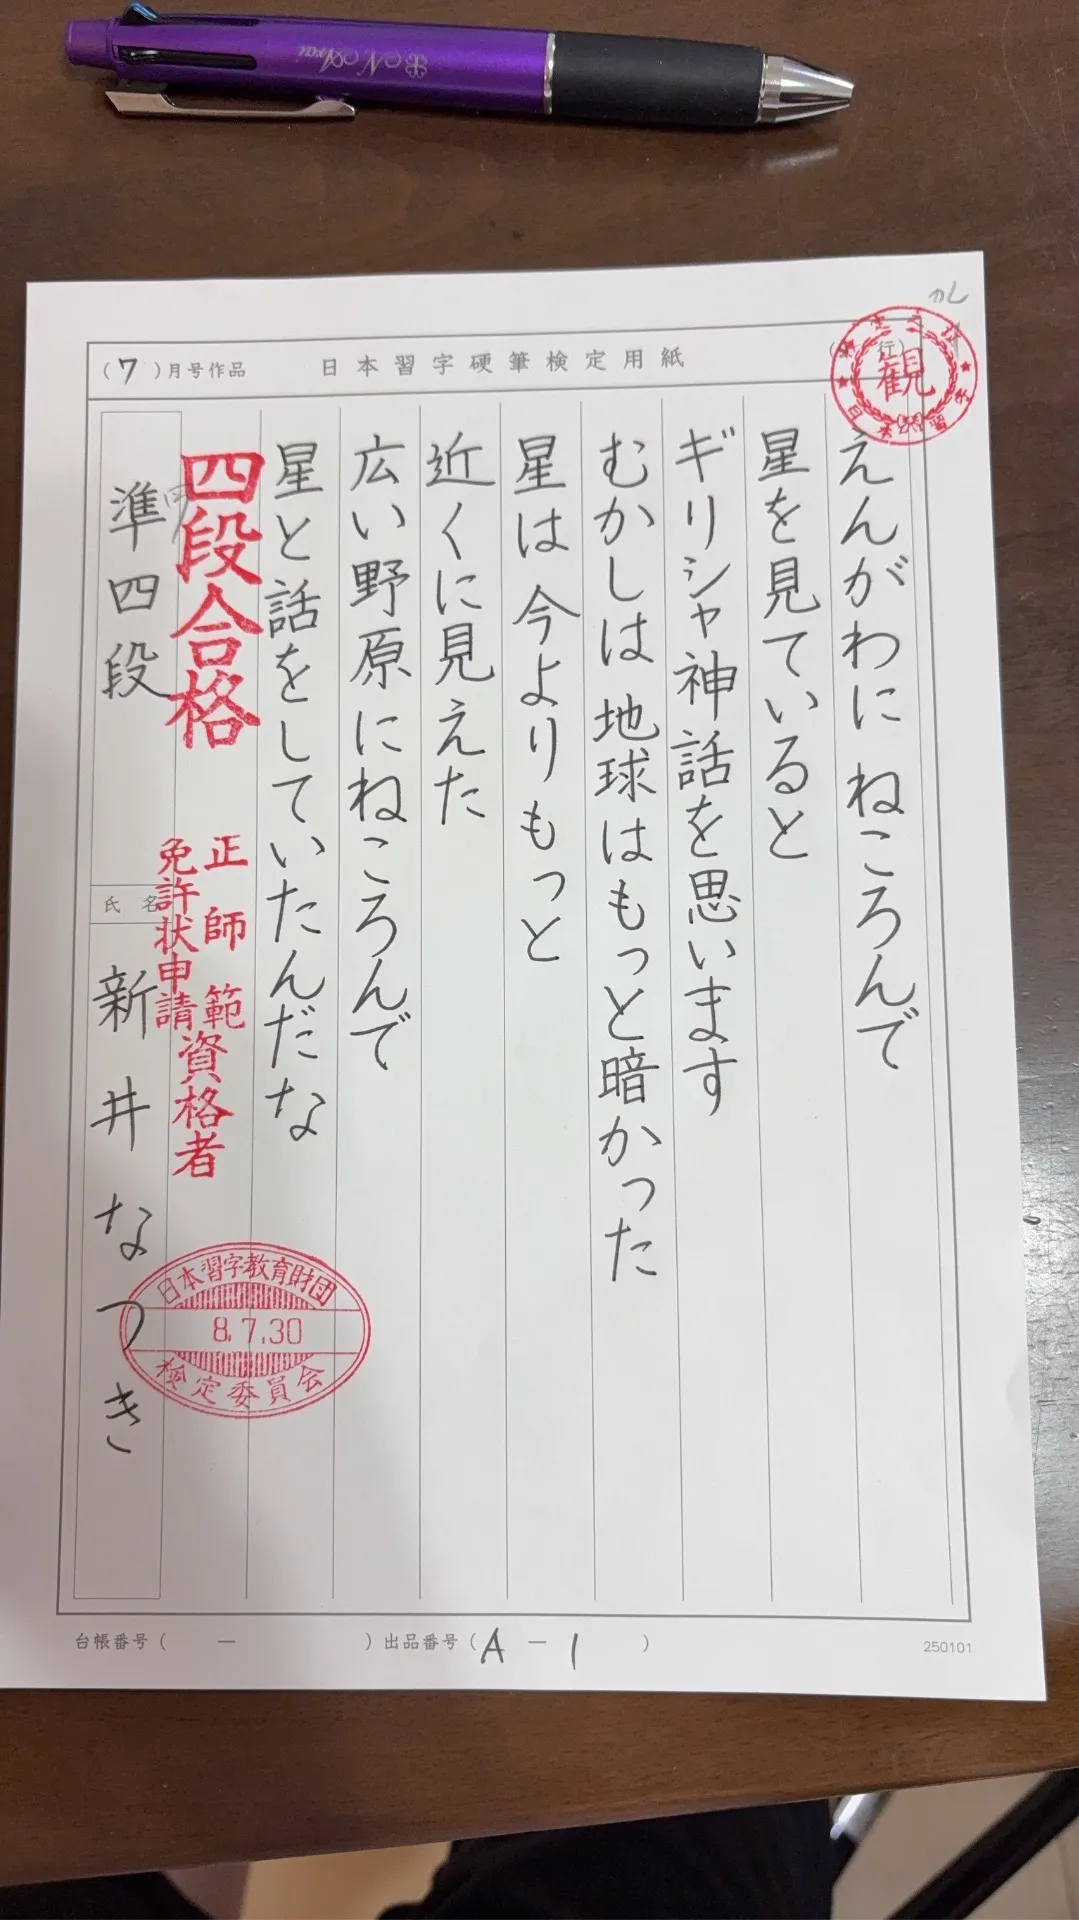 N. Arai
(7)月号作品
日本習字硬筆検定用紙
行)
観
えんがわに ねころんで
星を見ていると
ギリシャ神話を思います
むかしは 地球はもっと暗かった
星は 今よりもっと
近くに見えた
広い野原にねころんで
星と話をしていたんだな
四段合格
正師範
免許状申請
資格者
準四段
氏名
新井なつき
日本習字教育財団
8.7.30
検定委員会
台帳番号( ー )出品番号(A ー 1 )
250101